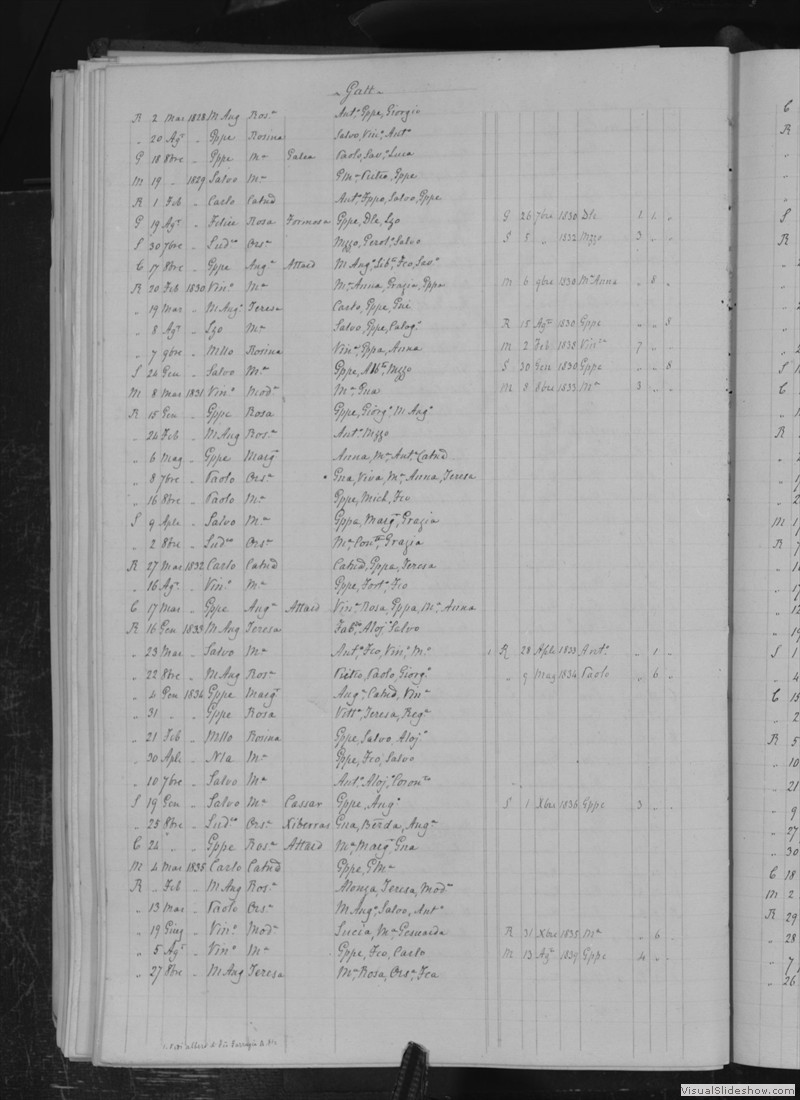 Gatt
R 2 Mar 1828 M Ang Ros.a Ant.o Gppe, Giorgio
„ 20 Ag.t „ Gppe Rosina Salvo, Vin.o Ant.o
G 18 8bre „ Gppe M.a Galea Paolo, Sav.o Luca
M 19 „ 1829 Salvo M.a G M.a Pietro, Gppe
R 1 Feb „ Carlo Catud Ant.o Fppo, Salvo, Gppe
G 19 Ag.t „ Felice Rosa Formosa Gppe, Dle, Lzo G 26 7bre 1830 Dle 1 1 „
S 30 7bre „ Lud.co Ors.a Mzzo, Gerol.o Salvo S 5 „ 1832 Mzzo 3 „ „
C 17 8bre „ Gppe Ang.a Attard M Ang.o Lib.o Fco, Sav.o
R 20 Feb 1830 Vin.o M.a M.a Anna, Grazia, Gppa M 6 9bre 1830 M.a Anna „ 8 „
„ 19 Mar „ M Ang.o Teresa Carlo, Gppe, Gni
„ 8 Ag.t „ Lzo M.a Salvo, Gppe, Calog.o R 15 Ag.t 1830 Gppe „ „ 8
„ 7 9bre „ Mllo Rosina Vin.a Gppa, Anna M 2 Feb 1838 Vin.a 7 „ „
S 24 Gen „ Salvo M.a Gppe, Alb.o Mzzo S 30 Gen 1830 Gppe „ „ 8
M 8 Mar 1831 Vin.o Mod.a M.a Gna M 8 8bre 1833 M.a 3 „ „
R 15 Gen „ Gppe Rosa Gppe, Giorg.o M Ang.o
„ 24 Feb „ M Ang Ros.a Ant.o Mzzo
„ 6 Mag „ Gppe Marg.a Anna, M.a Ant.a Catud
„ 8 7bre „ Paolo Ors.a Gna, Viva, M.a Anna, Teresa
„ 16 8bre „ Paolo M.a Gppe, Mich, Fco
S 9 Aple „ Salvo M.a Gppa, Marg.a Grazia
„ 2 8bre „ Lud.co Ors.a M.a Con.tta Grazia
R 27 Mar 1832 Carlo Catud Catud, Gppa, Teresa
„ 16 Ag.t „ Vin.o M.a Gppe, Fort.o Fco
C 17 Mar „ Gppe Ang.a Attard Vin.a Rosa, Gppa, M.a Anna
R 16 Gen 1833 M Ang Teresa Fab.o Aloj.o Salvo
„ 23 Mar „ Salvo M.a Ant.o Fco, Vin.o M.o R 28 Aple 1833 Ant.o „ 1 „
„ 22 8bre „ M Ang Ros.a Pietro, Paolo, Giorg.o „ 9 Mag 1834 Paolo „ 6 „
„ 4 Gen 1834 Gppe Marg.a Ang.a Catud, Vin.a
„ 31 „ „ Gppe Rosa Vitt.a Teresa, Reg.a
„ 21 Feb „ Mllo Rosina Gppe, Salvo, Aloj.o
„ 30 Aple „ Nla M.a Gppe, Fco, Salvo
„ 10 7bre „ Salvo M.a Ant.a Aloj.a Coron.ta
S 19 Gen „ Salvo M.a Cassar Gppe, Ang.o S 1 Xbre 1836 Gppe 3 „ „
„ 23 8bre „ Lud.co Ors.a Xiberras Gna, Berda, Ang.a
C 24 „ „ Gppe Ros.a Attard M.a Marg.a Gna
M 4 Mar 1835 Carlo Catud Gppe, G M.a
R „ Feb „ M Ang Ros.a Alonza, Teresa, Mod.a
„ 13 Mar „ Paolo Ors.a M Ang.o Salvo, Ant.o
„ 19 Giug „ Vin.o Mod.a Lucia, M.a Gesualda R 31 Xbre 1835 M.a „ 6 „
„ 5 Ag.t „ Vin.o M.a Gppe, Fco, Carlo M 13 Ag.t 1839 Gppe 4 „ „
„ 27 8bre „ M Ang Teresa M.a Rosa, Ors.a Fca
VisualSlideshow.com